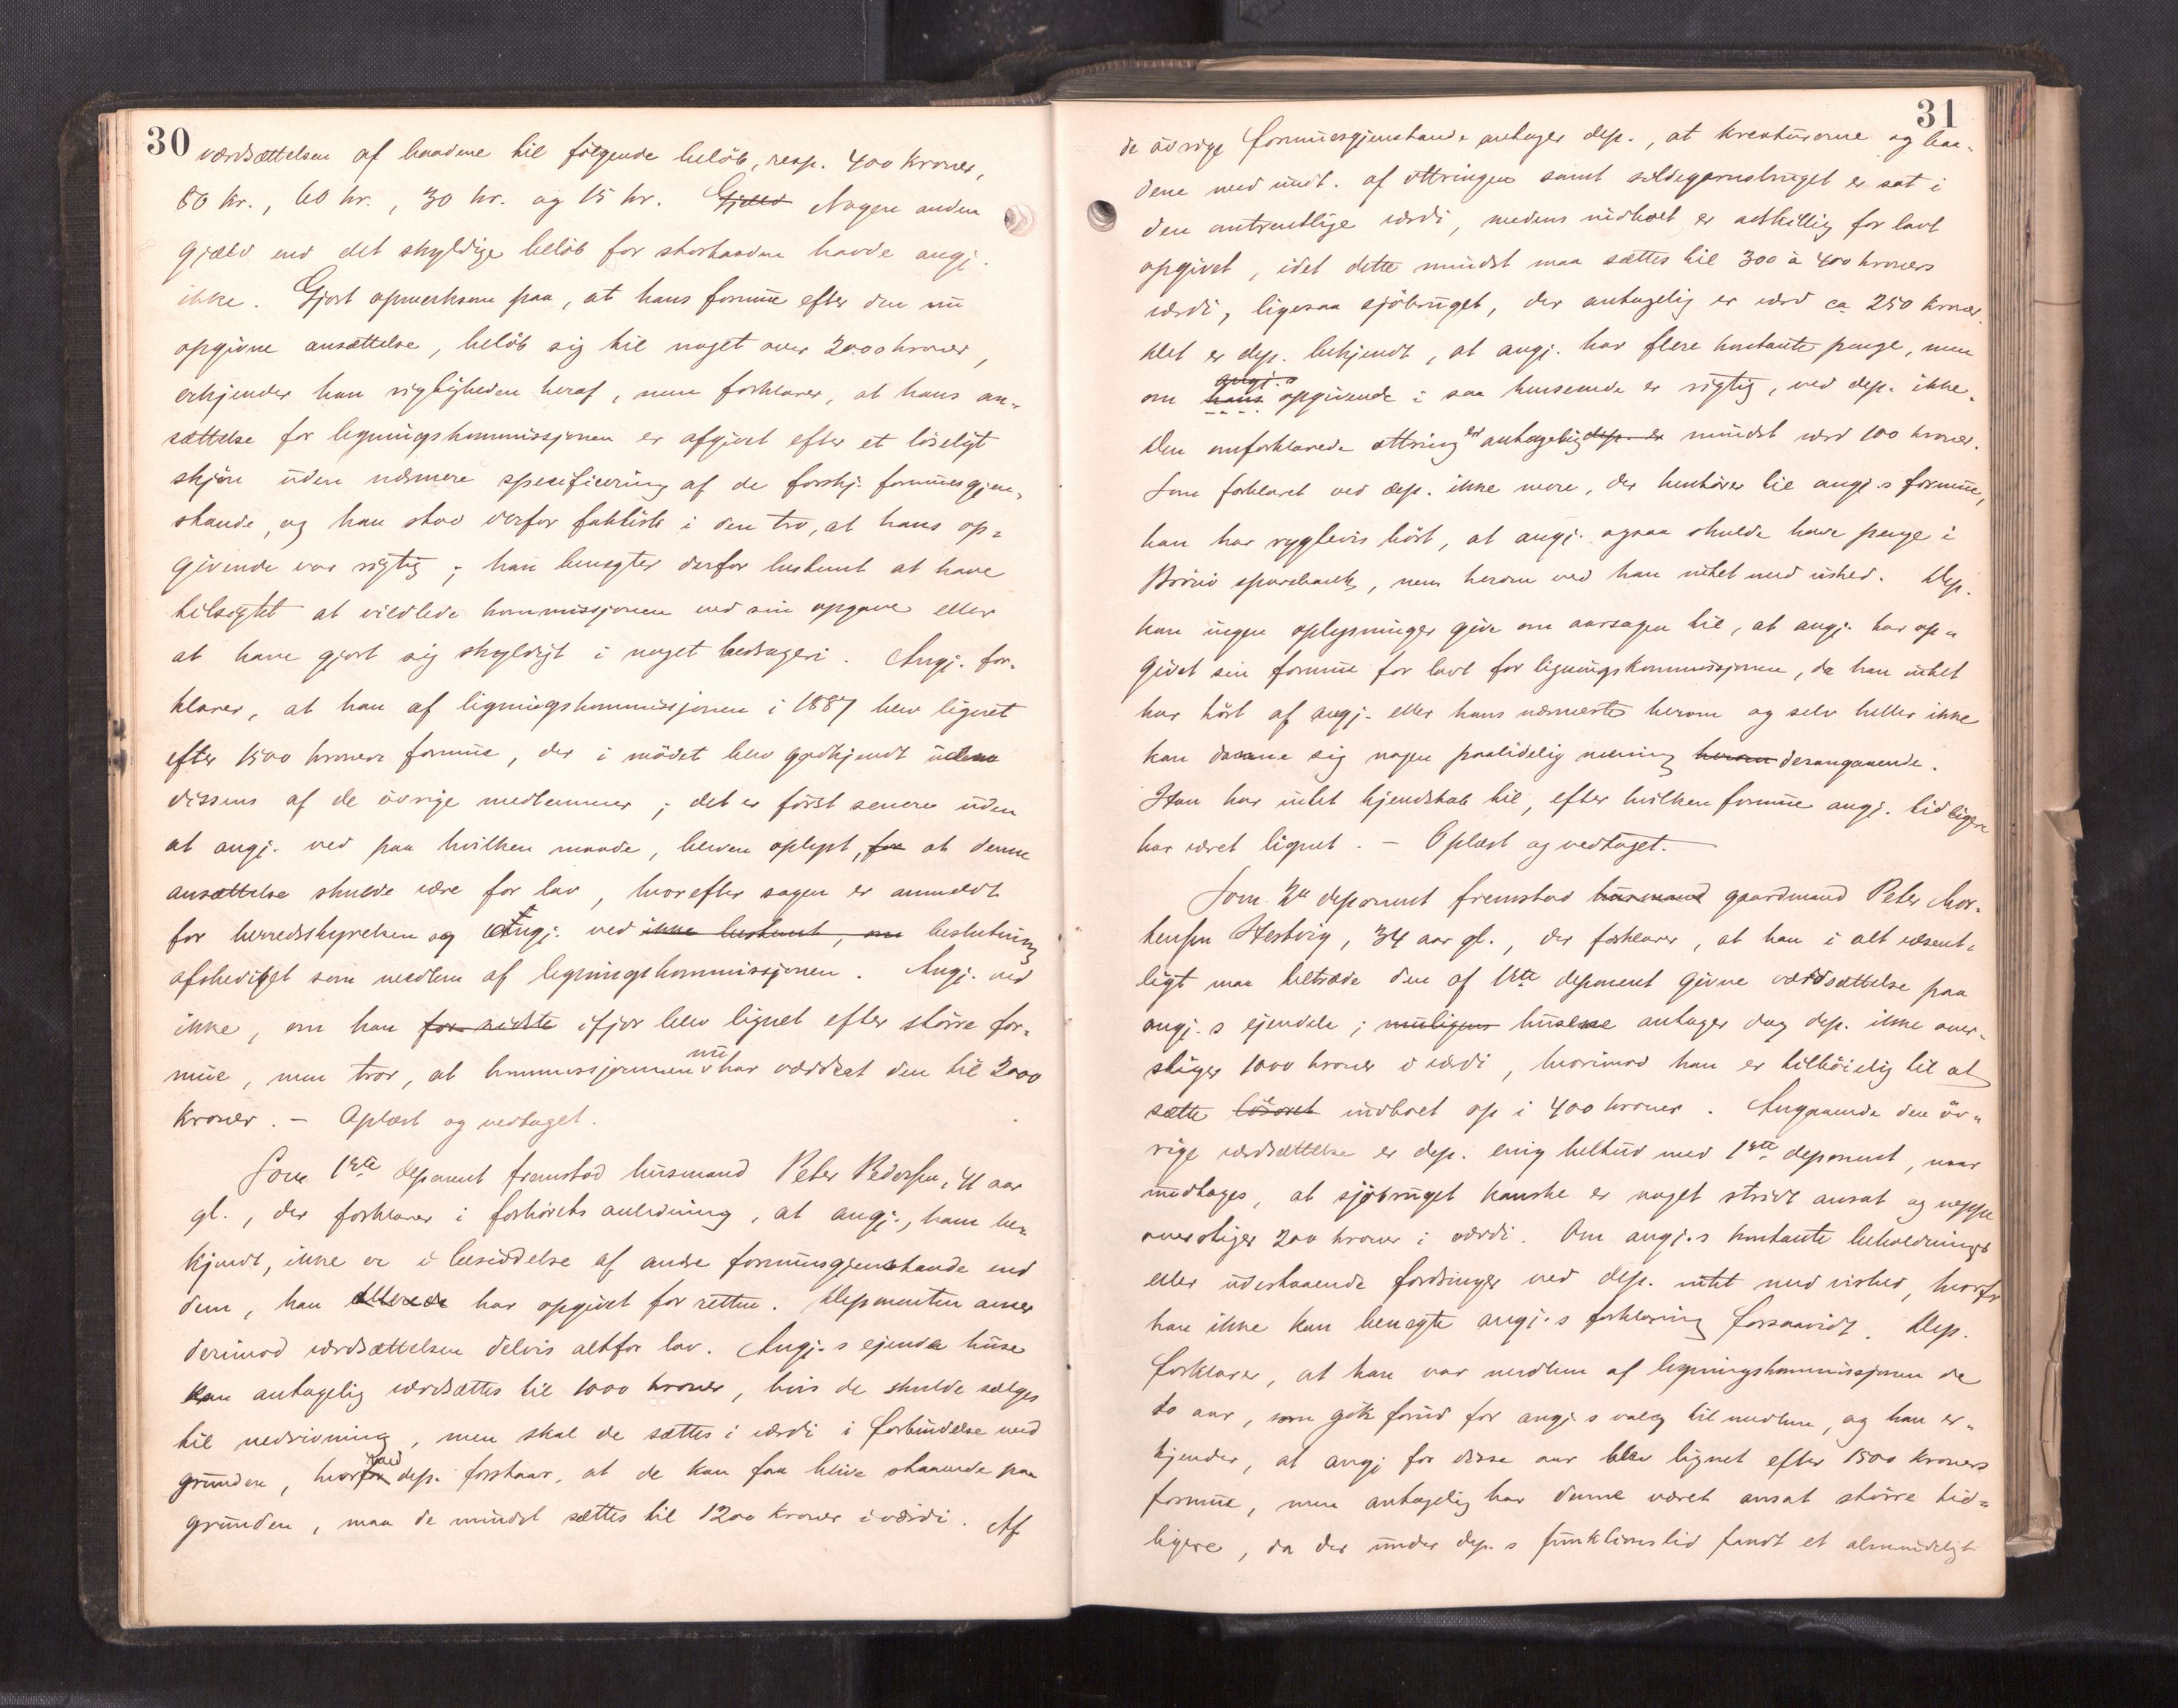 30
værdsættelsen af baadene til følgende beløb, resp. 400 kroner,
80 kr., 60 kr., 30 kr. og 15 kr. Gjæld Nogen anden
gjæld end det skyldige beløb for storbaaden havde angj.
ikke. Gjort opmerksom paa, at hans formue efter den nu
opgivne ansættelse, beløb sig til noget over 2000 kroner,
erkjender han rigtigheden heraf, men forklarer, at hans an-
sættelse for ligningskommissjonen er afgivet efter et løseligt
skjøn uden nærmere specificering af de forskj. formuesgjen-
stande, og han stod derfor faktisk i den tro, at hans op-
givende var rigtig; han benegter derfor bestemt at have
tilsigtet at vildlede kommissjonen ved sin opgave eller
at have gjort sig skyldigt i noget bedrageri. Angj. for-
klarer, at han af ligningskommissjonen i 1887 blev lignet
efter 1500 kroners formue, der i mødet blev godkjendt uden
dissens af de øvrige medlemmer; det er først senere uden
at angj. ved paa hvilken maade, bleven oplyst, for at denne
ansættelse skulde være for lav, hvorefter sagen er anmeldt
for herredsstyrelsen og angj. ved ikke bestemt, om beslutning
afskediget som medlem af ligningskommissjonen. Angj. ved
ikke, om han for sidste ifjor blev lignet efter større for-
mue, men tror, at kommissjonen nu har værdsat den til 2000
kroner. - Oplæst og vedtaget.
Som 1ste deponent fremstod husmand Peter Pedersen, 41 aar
gl., der forklarer i forhørets anledning, at angj., ham be-
kjendt, ikke er i besiddelse af andre formuesgjenstande end
dem, han allerede har opgivet for retten. Deponenten anser
derimod værdsættelsen delvis altfor lav. Angj.s ejende huse
kan antagelig værdsættes til 1000 kroner, hvis de skulde sælges
til nedrivning, men skal de sættes i værdi i forbindelse med
grunden, hvorfor ved dep. forstaar, at de kan faa blive staaende paa
grunden, maa de mindst sættes til 1200 kroner i værdi. Af
31
de øvrige formuesgjenstande antager dep., at kreaturerne og baa-
dene med undt. af ottringen samt sildegarnsbruget er sat i
den omtrentlige værdi, medens indboet er adskillig for lavt
opgivet, idet dette mindst maa sættes til 300 à 400 kroners
værdi, ligesaa sjøbruget, der antagelig er værd ca 250 kroner.
Det er dep. bekjendt, at angj. har flere kontante penge, men
om angj.s hans opgivende i saa henseende er rigtig, ved dep. ikke.
Den omforklarede ottring er antagelig dep. er mindst værd 100 kroner.
Som forklaret ved dep. ikke mere, der henhører til angj.s formue,
han har rygtevis hørt, at angj. ogsaa skulde have penge i
Brönö sparebank, men herom ved han intet med vished. Dep.
kan ingen oplysninger give om aarsagen til, at angj. har op-
givet sin formue for lavt for ligningskommissjonen, da han intet
har hørt af angj. eller hans nærmeste herom og selv heller ikke
kan danne sig nogen paalidelig mening herom desangaaende.
Han har intet kjendskab til, efter hvilken formue angj. tidligere
har været lignet. - Oplæst og vedtaget.
Som 2de deponent fremstod husmand gaardmand Peter Mor-
tensen Hestvig, 34 aar gl., der forklarer, at han i alt væsent-
ligt maa tiltræde den af 1ste deponent givne værdsættelse paa
angj.s ejendele; muligens husene antager dog dep. ikke over-
stiger 1000 kroner i værdi, hvorimod han er tilbøielig til at
sætte løsøret indboet op i 400 kroner. Angaaende den øv-
rige værdsættelse er dep. enig heltud med 1ste deponent, naar
undtages, at sjøbruget kanske er noget stridt ansat og neppe
overstiger 200 kroner i værdi. Om angj.s kontante beholdninger
eller udestaaende fordringer ved dep. intet med vished, hvorfor
han ikke kan benegte angj.s forklaring forsaavidt. Dep.
forklarer, at han var medlem af ligningskommissjonen de
to aar, som gik forud for angj.s valg til medlem, og han er-
kjender, at angj. for disse aar blev lignet efter 1500 kroners
formue, men antagelig har denne været ansat større tid-
ligere, da der under dep.s funktionstid fandt et almindeligt